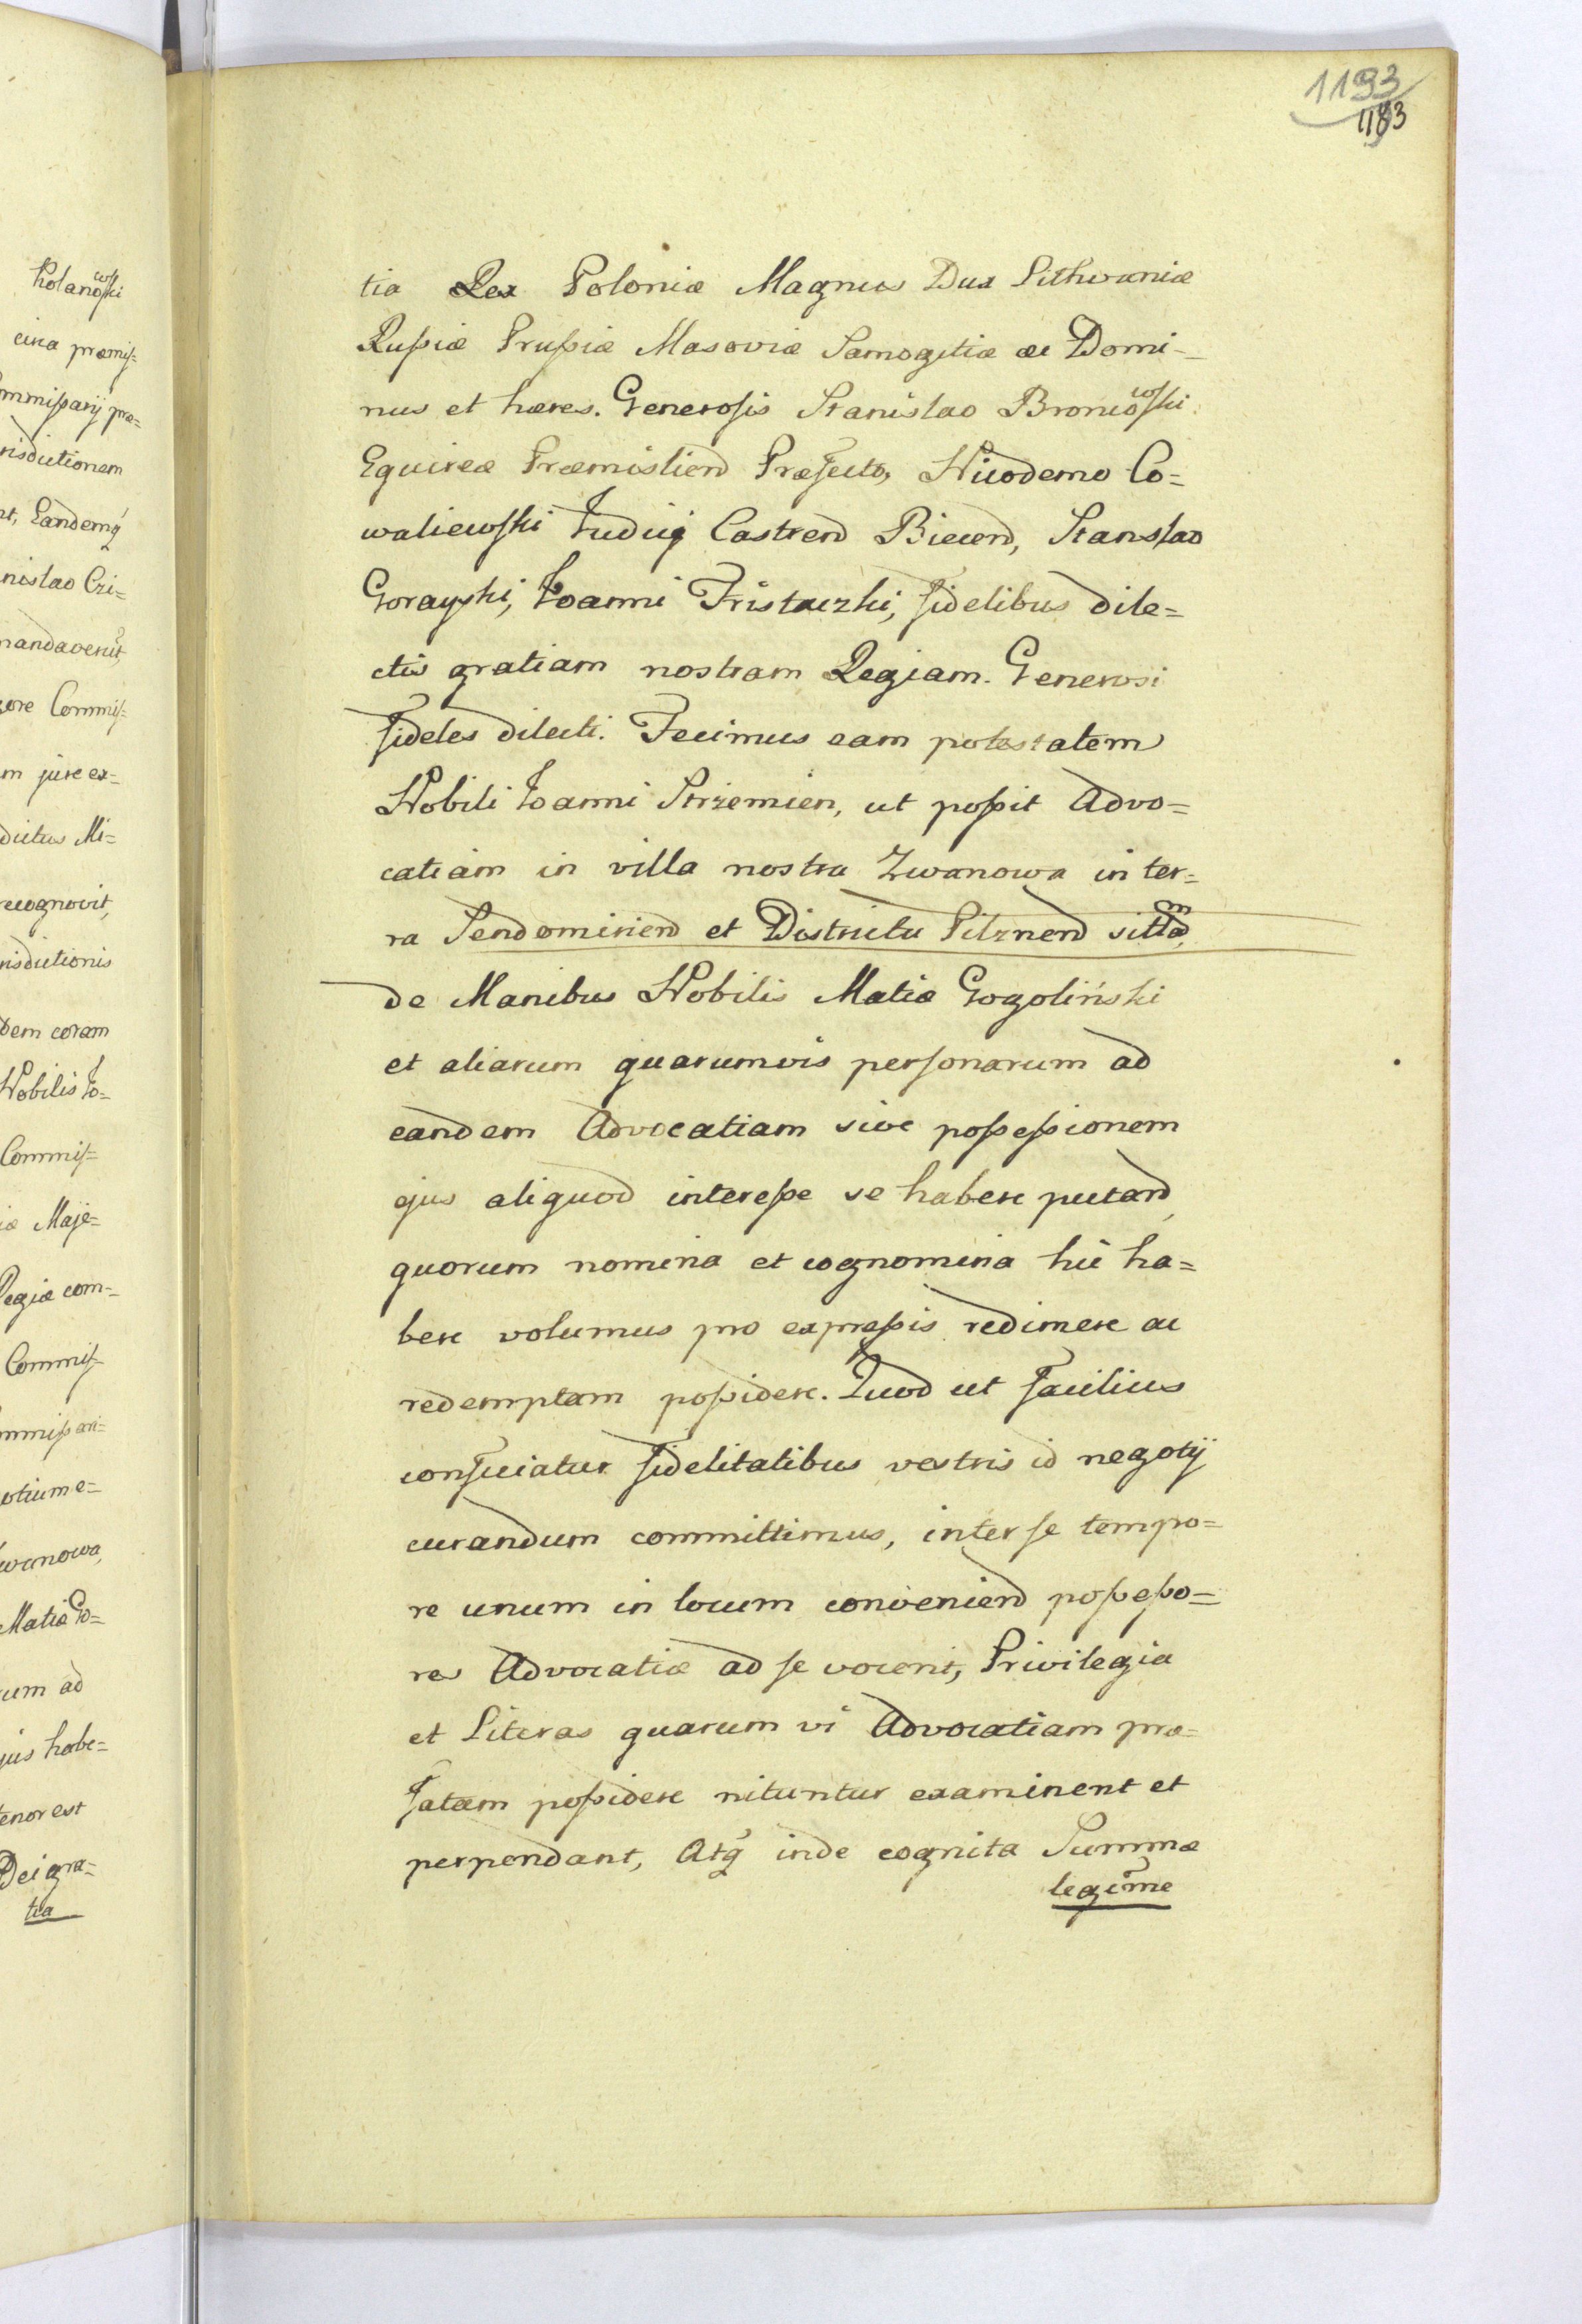 1193
1183
Kolanowski
circa præmis=
ommissarij præ=
risdictionem
nt, Eandemq́
nislao Cri=
mandaverũt,
gore Commis=
m jure ex=
dictus Mi=
recognovit,
risdictionis
dem coram
Nobilis Jo=
Commis=
iæ Maje=
Regiæ com=
Commis=
mmissari=
otium e=
wanowa,
Matiæ Go=
rum ad
jus habe=
tenor est
Dei gra=
tia
tia Rex Poloniæ Magnus Dux Lithvaniæ
Russiæ Prussiæ Masoviæ Samogitiæ ac Domi=
nus et hæres. Generosis Stanislao Broniowski
Equireæ Præmislien̄ Præfecto, Nicodemo Co=
waliewski Judicij Castren̄ Biecen̄, Stanslao
Gorayski, Joanni Fristaczki, fidelibus dile=
ctis gratiam nostram Regiam. Generosi
fideles dilecti. Fecimus eam potestatem
Nobili Joanni Strzemien, ut possit Advo=
catiam in villa nostra Zwanowa in ter=
ra Sendomirien̄ et Districtu Pilznen̄ sittam,
de Manibus Nobilis Matiæ Gogoliński
et aliarum quarumvis personarum ad
eandem Advocatiam sive possessionem
ejus aliquod interesse se habere putan̄,
quorum nomina et cognomina hic ha=
bere volumus pro expressis redimere ac
redemptam possidere. Quod ut facilius
conficiatur fidelitatibus vestris id negotij
curandum committimus, inter se tempo=
re unum in locum convenien̄ possesso=
res Advocatiæ ad se vocent, Privilegia
et Literas quarum vi Advocatiam præ=
fatam possidere nituntur examinent et
perpendant, Atq́ inde cognita Summa
legitĩme